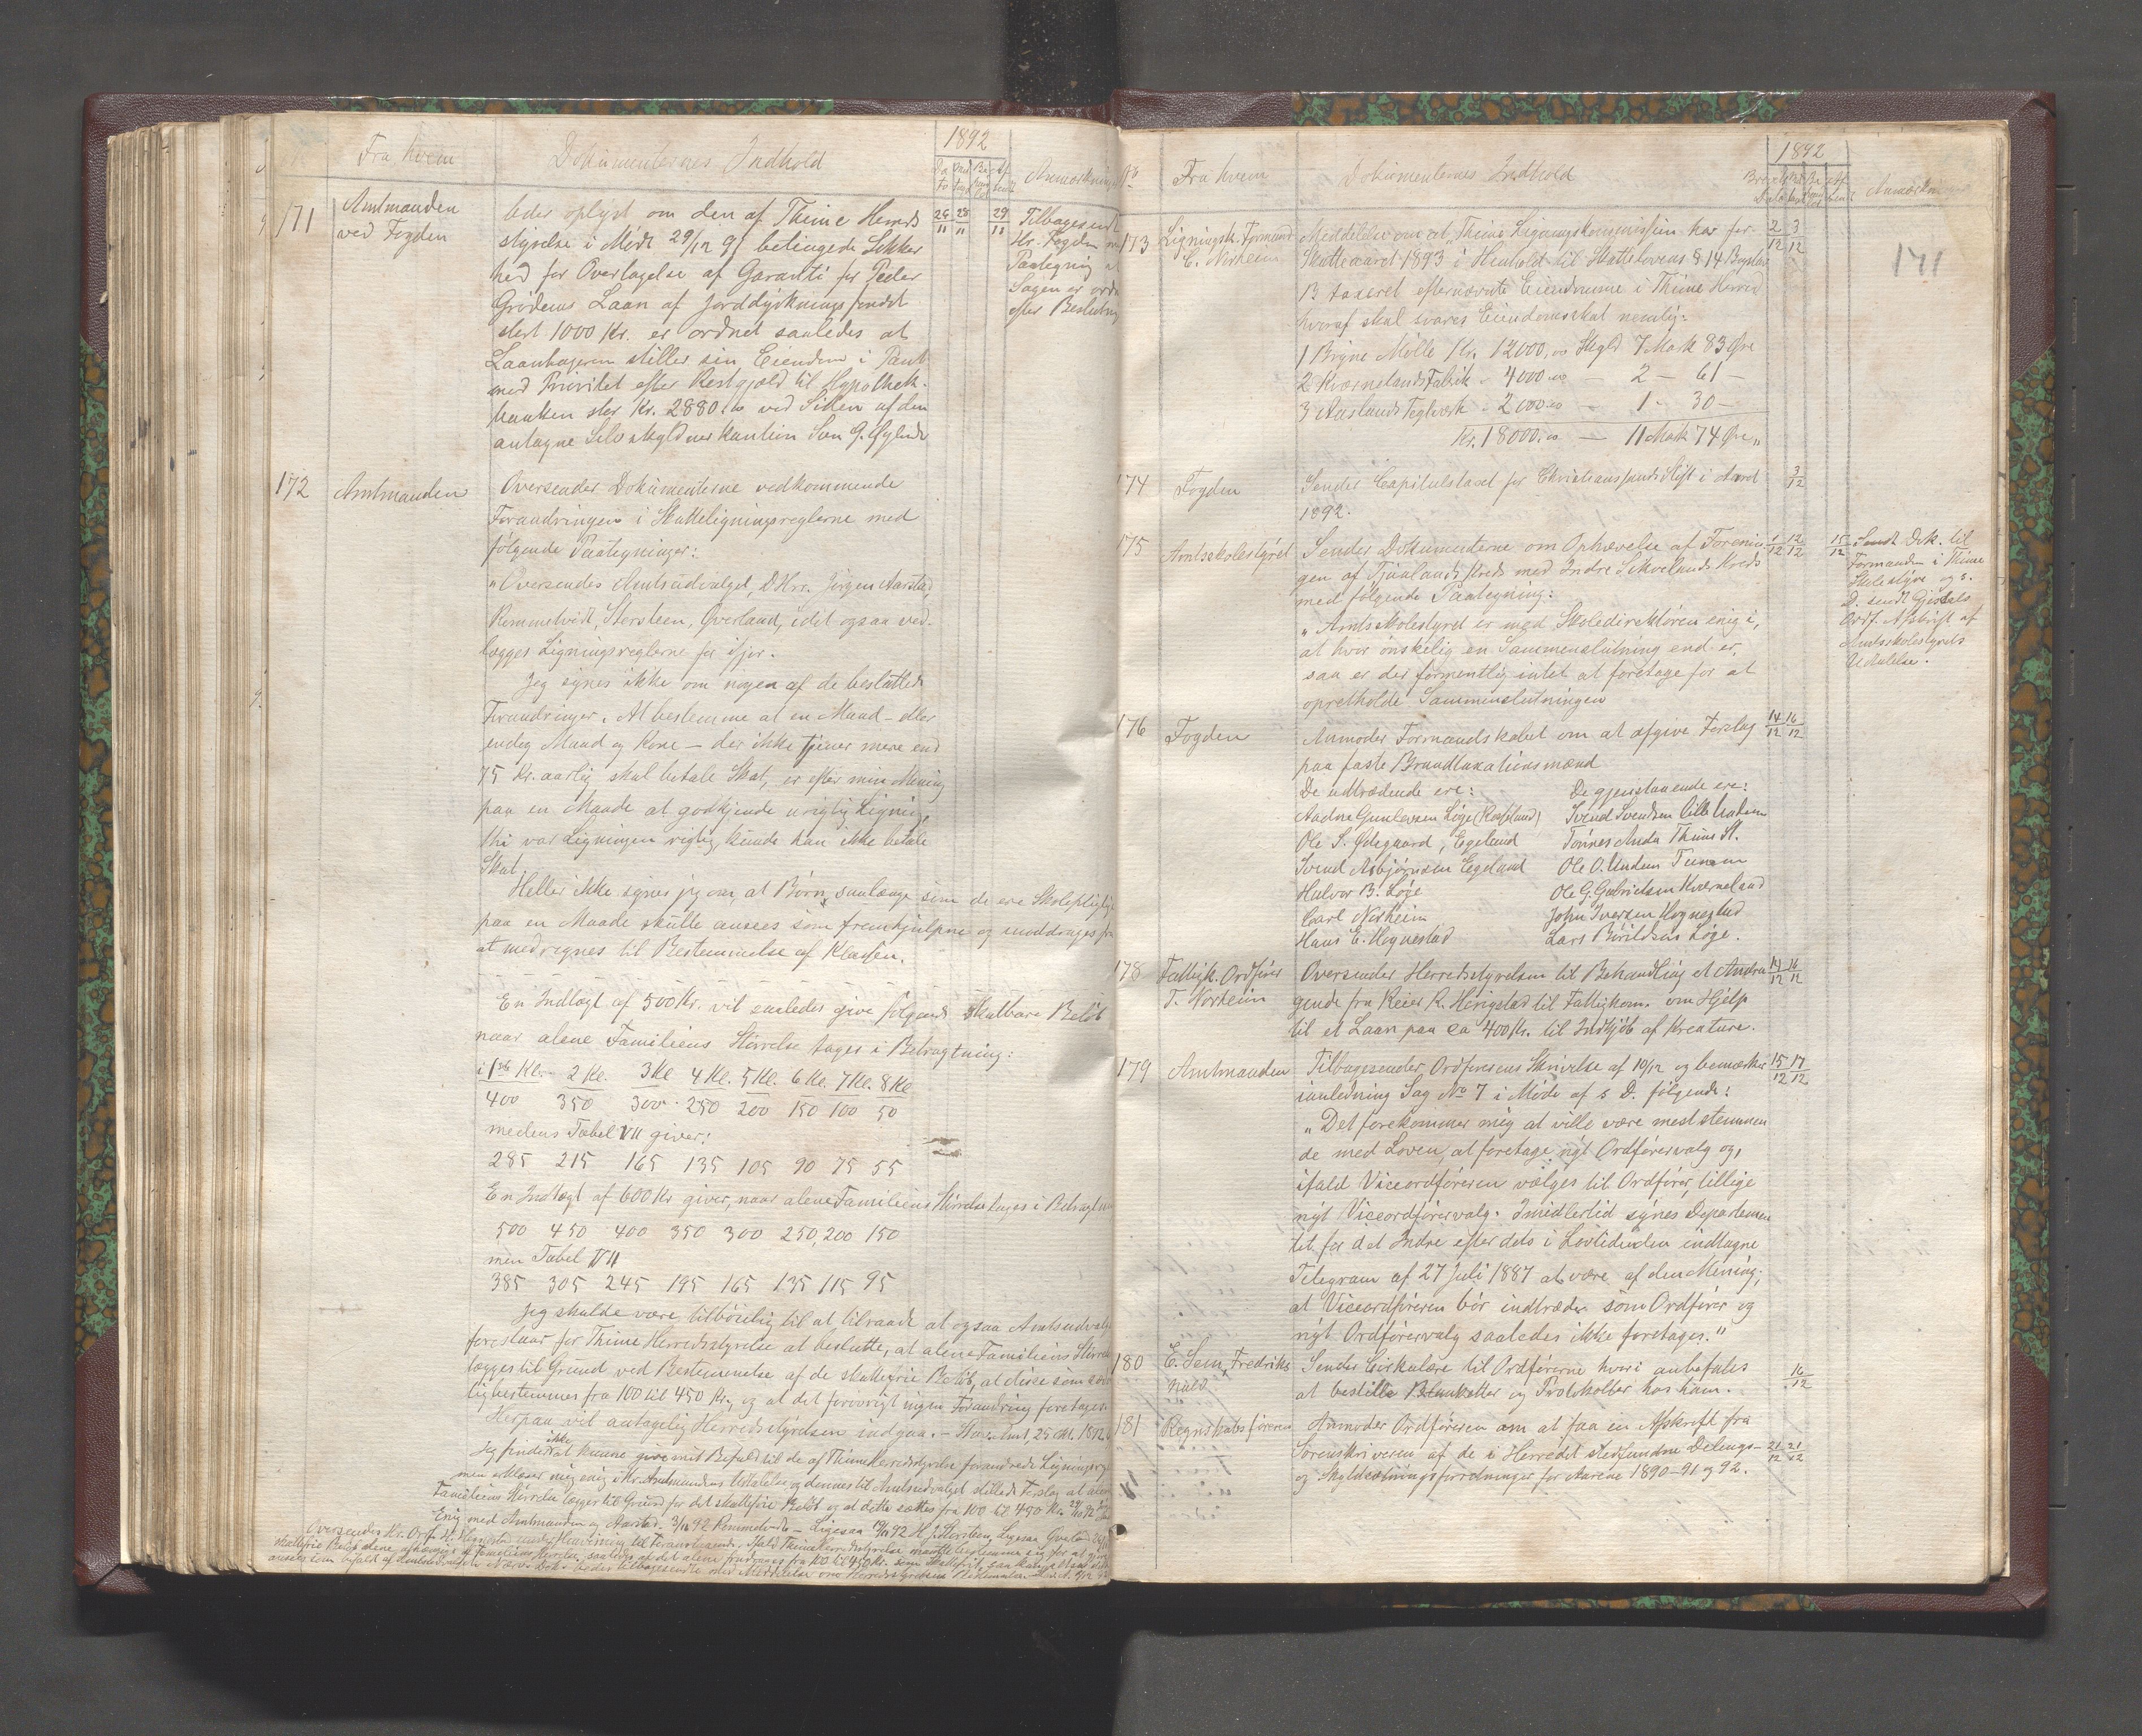 Fra hvem
Dokumenternes Indhold
1892
171
Amtmanden
ved Fogden
beder oplyst om den af Thime Herreds
styrelse i Møde 29/12 91 betingede Sikker
hed for Overtagelse af Garanti for Peder
Grødems Laan af Jorddyrkningsfondet
stort 1000 Kr. er ordnet saaledes at
Laantageren stiller sin Eiendom i Pant
med Prioritet efter Restgjæld til Hypothek-
banken stor Kr. 2880.00 ved Siden af den
antagne Selvskyldnerkaution Sven G.
26/11 28/11 29/11
Tilbagesendt
Hr. Fogden
Paategning
Sagen er
efter Beslutning
172
Amtmanden
Oversender Dokumenterne vedkommende
Forandringen i Skatteligningsreglerne med
følgende Paategninger:
"Oversendes Amtsudvalget, DHrr. Jørgen Aarstad,
Remmetvedt, Stersteen, Qveland, idet ogsaa ved-
lægges Ligningsreglerne for ifjor.
Jeg synes ikke om nogen af de besluttede
Forandringer. At bestemme at en Mand - eller
endog Mand og Kone - der ikke tjener mere end
75 Kr. aarlig skal betale Skat, er efter min Mening
paa en Maade at godkjende urigtig Ligning,
thi var Ligningen rigtig, kunde han ikke betale
Skat.
Heller ikke synes jeg om, at Børn, saalænge som de ere Skolepligtige
paa en Maade skulle ansees som fremhjulpne og unddrages fra
at medregnes til Bestemmelse af Klassen.
En Indtægt af 500 Kr. vil saaledes give følgende skatbare Beløb
naar alene Familiens Størrelse tages i Betragtning:
i 1ste Kl. 2 Kl. 3 Kl 4 Kl. 5 Kl. 6 Kl. 7 Kl. 8 Kl
400 350 300 250 200 150 100 50
medens Tabel VII giver:
285 215 165 135 105 90 75 55
En Indtægt af 600 Kr giver, naar alene Familiens Størrelse tages i Betragtning
500 450 400 350 300 250, 200 150
men Tabel VII
385 305 245 195 165 135 115 95
Jeg skulde være tilbøielig til at tilraade at ogsaa Amtsudvalget
foreslaar for Thime Herredsstyrelse at beslutte, at alene Familiens Størrelse
lægges til Grund ved Bestemmelse af de skattefrie Beløb, at disse som
lig bestemmes fra 100 til 450 Kr., og at det forøvrigt ingen Forandring foretages.
Herpaa vil antagelig Herredsstyrelsen indgaa. - Stavanger Amt, 25 1892
Jeg finder ikke at kunne give mit Bifald til de af Thime Herredsstyrelse forandrede Ligningsregler
men erklærer mig enig i Hr. Amtmandens Udtalelse og dennes til Amtsudvalget stillede Forslag at alene
Familiens Størrelse lægges til Grund for det skattefrie Beløb og at dette sættes fra 100 til 450 Kr.
Enig med Amtmanden og Aarstad. 3/10 92 Remmetvedt - Ligesaa 19/10 92 H. J. Stersteen, Ligesaa Qveland
Oversendes Hr. Ordf. H. Hognestad under Henvisning til Foranstaaende.
1892
No
Fra hvem
Dokumenternes Indhold
Anmærkninger
171
173
Ligningsk. Formand
C. Norheim
Meddelelse om at "Thime Ligningskommission har for
Skatteaaret 1893 i Henhold til Skattelovens § 14 Bogstav
B taxeret efternævnte Eiendomme i Thime Herred
hvoraf skal svares Eiendomsskat nemlig:
1 Bryne Mølle Kr. 12000.00 Skyld 7 Mark 83 Øre
2 Kværnelands Fabrik - 4000.00 2 - 61 -
3 Auslands Teglværk - 2000.00 - 1 - 30 -
Kr. 18000.00 - 11 Mark 74 Øre "
2/12 3/12
174
Fogden
Sender Capitulstaxt for Christianssands Stift i Aaret
1892.
3/12
175
Amtsskolestyret
Sender Dokumenterne om Ophævelse af Forenin
gen af Tjaalands Kreds med Indre Sikvelands Kreds
med følgende Paategning:
"Amtsskolestyret er med Skoledirektøren enig i,
at hvor ønskelig en Sammenslutning end er,
saa er der formentlig intet at foretage for at
opretholde Sammenslutningen
1/12 12/12
15/12 Sendt Dok. til
Formanden i Thime
Skolestyre og s.
D. sendt Gjesdals
Ordf. Afskrift af
Amtsskolestyrets
Udtalelse.
176
Fogden
Anmoder Formandskabet om at afgive Forslag
paa faste Brandtaxationsmænd
14/12 16/12
De udtrædende ere: De gjenstaaende ere:
Aadne Gunlevsen Løge (Kalsland) Svend Svendsen Lille Undem
Ole S. Ødegaard, Egeland Tønnes Anda Thime St.
Svend Asbjørnsen Egeland Ole O. Undem Tunem
Halvor B. Løge Ole G. Gabrielsen Kværneland
Carl Norheim John Iversen Hognestad
Hans E. Hognestad Lars Børildsen Løge.
178
Fattigk. Ordfører
T. Norheim
Oversender Herredsstyrelsen til Behandling et Andra
gende fra Reier R. Herigstad til Fattigkom. om Hjelp
til et Laan paa ca 400 Kr. til Indkjøb af Kreature.
14/12 16/12
179
Amtmanden
Tilbagesender Ordførerens Skrivelse af 10/12 og bemærker
i anledning Sag No 7 i Møde af s. D. følgende:
15/12 17/12
"Det forekommer mig at ville være mest stemmen
de med Loven, at foretage nyt Ordførervalg og,
ifald Viceordføreren vælges til Ordfører, tillige
nyt Viceordførervalg. Imidlertid synes Departemen
tet for det Indre efter dets i Lovtidenden indtagne
Telegram af 27 Juli 1887 at være af den Mening,
at Viceordføreren bør indtræde som Ordfører og
nyt Ordførervalg saaledes ikke foretages."
180
E. Sem, Fredriks
hald.
Sender Cirkulære til Ordførerne hvori anbefales
at bestille Blanketter og Protokoller hos ham.
16/12
181
Regnskabsføreren
Anmoder Ordføreren om at faa en Afskrift fra
Sorenskriveren af de i Herredet stedfundne Delings-
og Skyldsætningsforretninger for Aarene 1890-91 og 92.
21/12 21/12